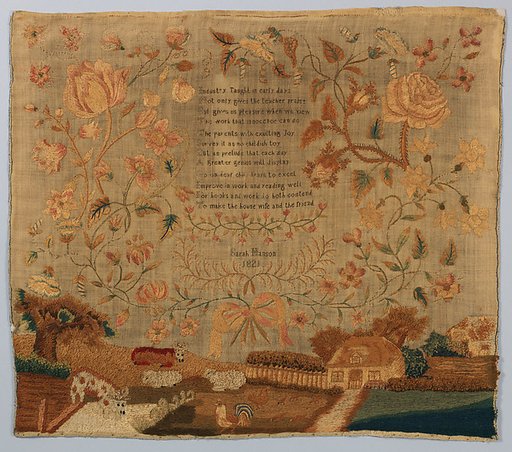 Industry Taught in early days
Not only gives the teacher praise
But gives us pleasure when we view
The work that innocence can do
The parents with exulting Joy
Survey it as no childish toy
But as prelude that each day
A Greater genius will display
dear child learn to excel
Improve in work and reading well
For books and work do both contend
To make the house wife and the friend
Sarah Hanson
1821